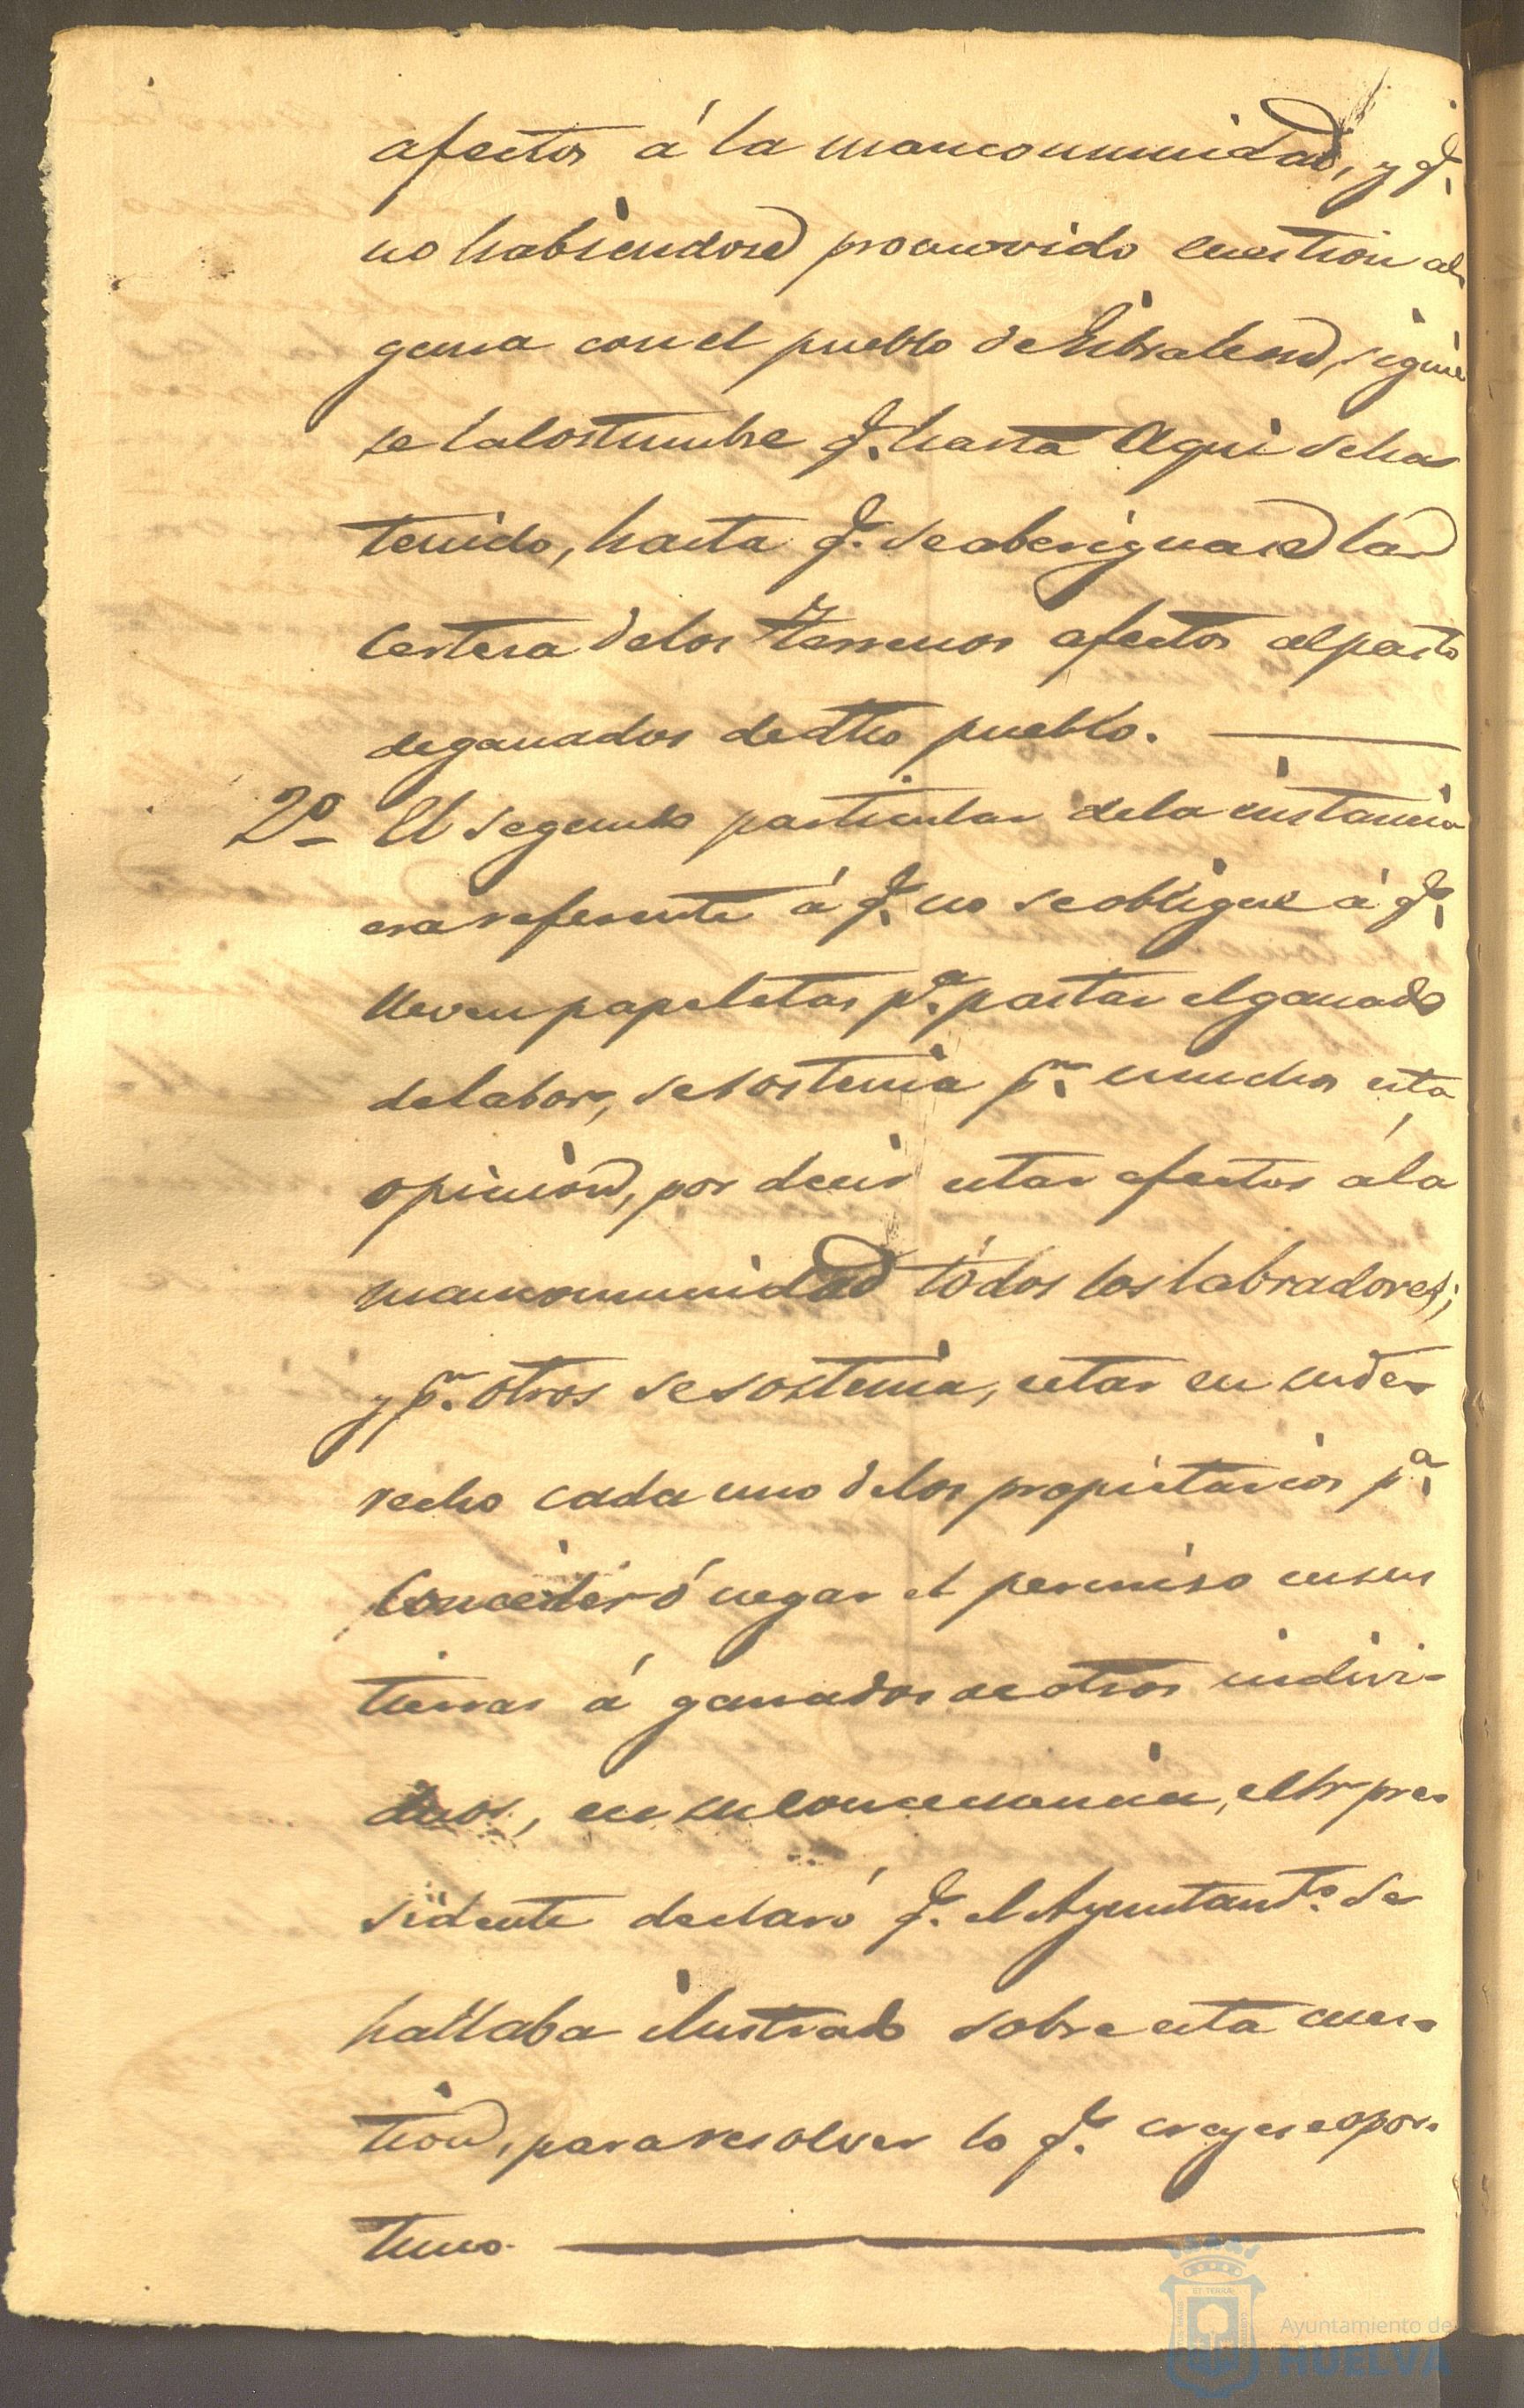 afectos á la mancomunidad, y q.
no habiendose promovido cuestion al
guna con el pueblo de Gibraleon, siguie
se la Costumbre q. hasta Aqui se ha s
tenido, hasta q. se aberiguase la
Certesa de los terrenos afectos al pasto
de ganados de dho pueblo.
2º El segundo particular de la instancia
era referente á q. no se obligue á q.
lleven papeletas pª. pastar el ganado
de labor, se sostenia pr. muchos esta
opinion, por decir estar afectos á la
mancomunidad todos los labradores;
y pr. otros se sostenia, estar en su de-
recho cada uno de los propietarios pª.
Conceder ó negar el permiso en sus
tierras á ganados de otros indivi-
duos, en su Consecuencia, el Sr pre-
sidente declaró q. el Ayuntamto. se
hallaba ilustrado sobre esta cues-
tion, para resolver lo q. creyese opor-
tuno.
Ayuntamiento de
HUELVA